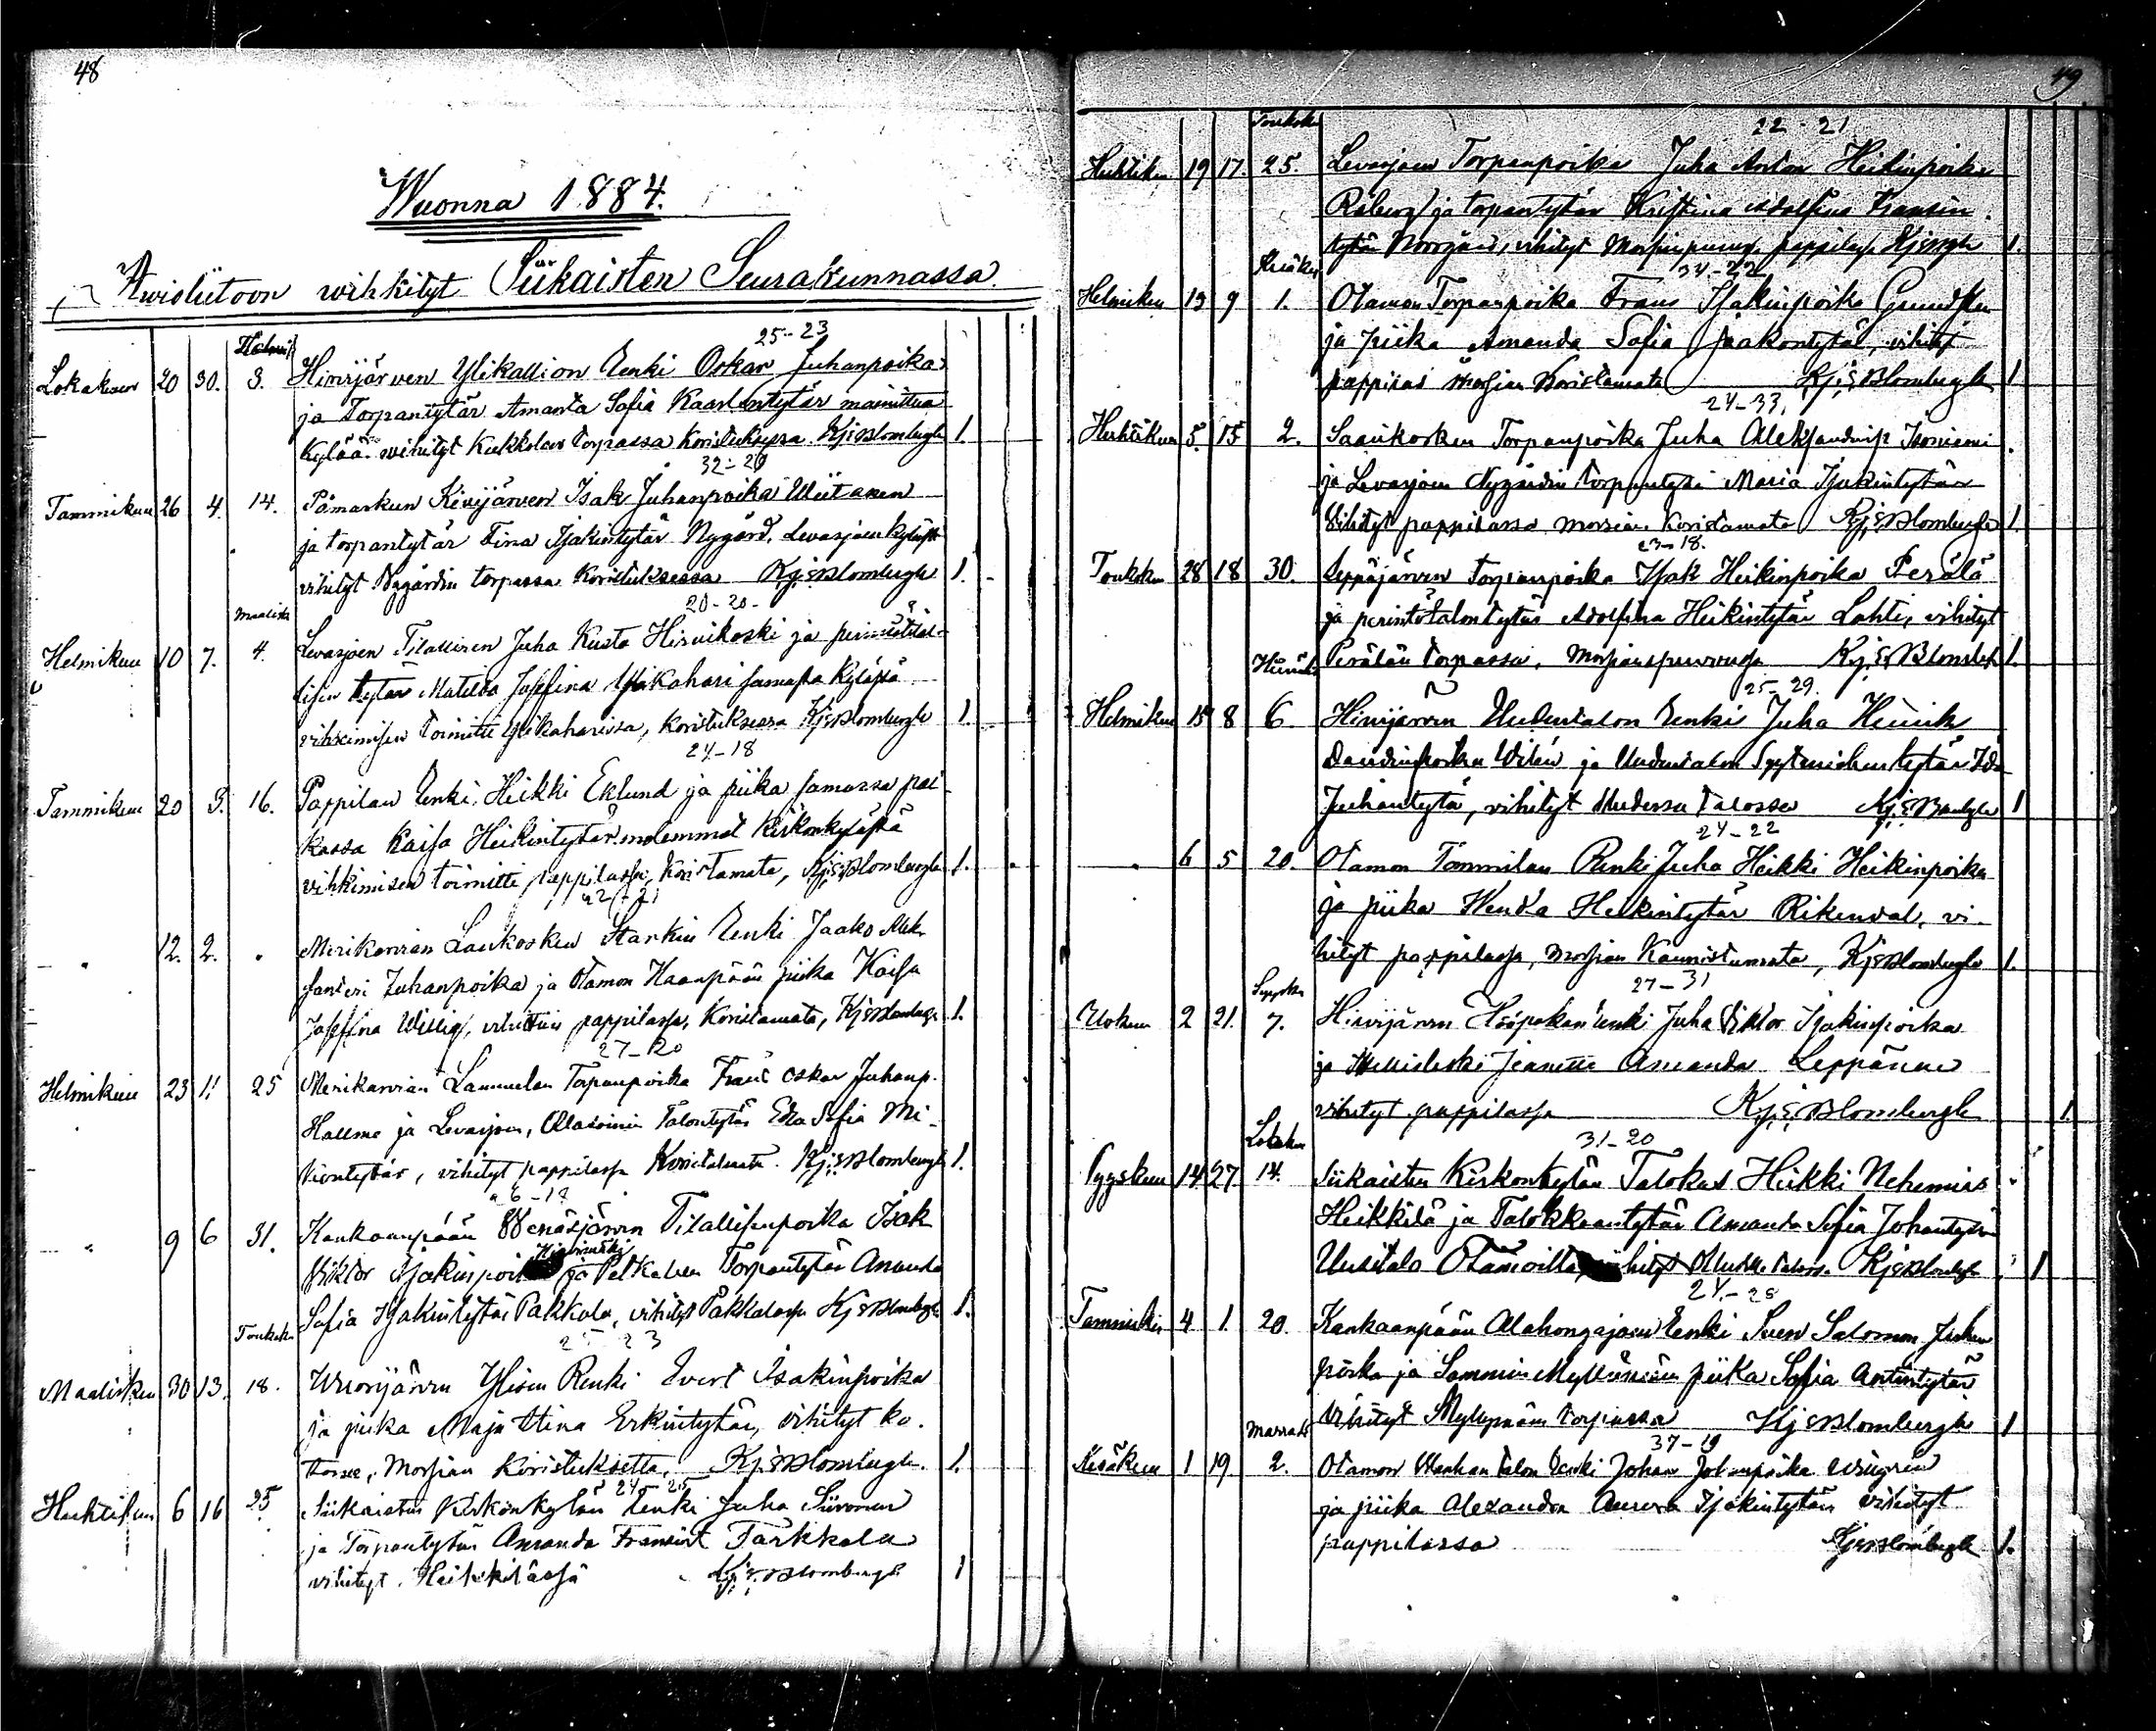 48
Wuonna 1884.
Awioliitoon wihkityt Siikaisten Seurakunnassa.
25-23
Lokakuun 20 30. 3. Hirvijärven Ylikallion Renki Oskar Juhanpoika
ja Torpantytär Amanta Sofia Kaarlentytär mainittua
Kylää. vihityt Kukkolan torpassa Koristuksessa. KjEBlombergh 1.
32-29
Tammikuu 26 4. 14. Pämarkun Kivijärven Isak Juhanpoika Uiitanen
ja torpantytär Fina Isakintytär Nygård, Levasjoen kylästä
vihityt Nygårdin torpassa Koristuksessa KjEBlombergh 1.
Maalisk 20-20-
Helmikuu 10 7. 4. Levasjoen Tilallinen Juha Kusta Hirvikoski ja perintötilal-
lisen tytär Matilda Josefina Ylikahari samasta Kylästä
vihkimisen toimitti Ylikaharissa, koristuksessa KjEBlombergh 1.
24-18
Tammikuu 20 3. 16. Pappilan Renki Heikki Eklund ja piika samassa pai-
kassa Kaisa Heikintytär molemmat Kirkonkylästä
vihkimisen toimitti pappilassa, Koristamata, KjEBlombergh 1.
12. 2. " Merikarvian Laukosken Starkin Renki Jaako Alek-
santeri Juhanpoika ja Otamon Haanpään piika Kaisa
Josefina Willig, vihittiin pappilassa, Koristamata, KjEBlombergh 1.
27-20
Helmikuu 23 1. 25 Merikarvian Lammelan Torpanpoika Frans Oskar Juhanp.
Hallme ja Levasjoen, Talontytär Eda Sofia Mi-
kontytär, vihityt pappilassa Koristamata. KjEBlombergh 1.
" 9 6 31. Kankaanpään Wenäsjärven Tilallisenpoika Isak
Wiktor Isakinpoika ja Torpantytär Amanda
Sofia Isakintytär Pakkala, vihityt Pakkalassa KjEBlombergh 1.
Toukok
Maaliskuu 30 13. 18. Wuorijärven Ylisen Renki Evert Isakinpoika
ja piika Maja Stina Erkintytär, vihityt ko-
tonse, Morsian Koristuksetta, KjEBlombergh. 1.
24-25
Huhtikuu 6 16 25 Siikaisten Kirkonkylän Renki Juha Siivonen
ja Torpantytär Amanda Fransint Tarkkala
vihityt Heikkilässä KjEBlombergh 1
49
Toukok 22-21
Huhtiku 19 17. 25. Levasjoen Torpanpoika Juha Anton Heikinpoika
Råberg ja torpantytär Kristina Adolfina Fransin
tytär vihityt Morsiuspuvus. pappilassa KjEBgh 1.
Kesäkuu 34-22
Helmikuu 13 9 1. Otamon Torpanpoika Frans Isakinpoika
ja piika Amanda Sofia Jaakontytär, vihityt
pappilas morsian koristamata KjEBlombergh 1
24-33.
Huhtikuu 5. 15 2. Saarikosken Torpanpoika Juha Aleksandrinp Isoniemi
ja Levasjoen Nygårdin torpantytär Maria Isakintytär
Vihityt pappilassa morsian Koristamata KjEBlombergh 1.
23-18.
Toukokuu 28 18 30. Leppäjärven torpanpoika Isak Heikinpoika Perälä
ja perintötalontytär Adolfina Heikintytär Lahti, vihityt
Perälän torpassa, Morsiuspuvussa KjEBlombergh 1.
Heinäk 25-29.
Helmikuu 15 8 6. Hirvijärven Uudentalon Renki Juha Henrik
Davidinpoika Wilén ja Uudentalon tytär Ida
Juhantytä, vihityt Uudessa talossa KjEBombergh 1
24-22
" 6 5 20. Otamon Tommilan Renki Juha Heikki Heikinpoika
ja piika Wenda Heikintytär Rikenval, vi-
hityt pappilassa, Morsian Kaunistamata, KjEBlombergh 1.
Syysk 27-31
2 21. 7. Hirvijärven Renki Juha Viktor Isakinpoika
ja Jeanette Amanda Leppänen
vihityt pappilassa KjEBlombergh 1
Lokaku 31-20
Syyskuu 14 27. 14. Siikaisten Kirkonkylän Talokas Heikki Nehemias
Heikkilä ja Talokkaantytär Amanda Sofia Johantytär
Uusitalo Otamoilta vihityt Uudes talossa KjEBlombergh 1
24-28
Tammiku 4 1. 20. Kankaanpään Alahongajoen Renki Sven Salomon
poika ja Sammin Myllymäen piika Sofia Antintytär
Vihityt Myllymäen torpassa KjEBlombergh 1
Marrask 37-19
Kesäkuu 1 19 2. Otamon Wanhan talon Renki Johan Johanpoika
ja piika Alexandra Aurora Isakintytär vihityt
pappilassa KjEBlombergh 1.